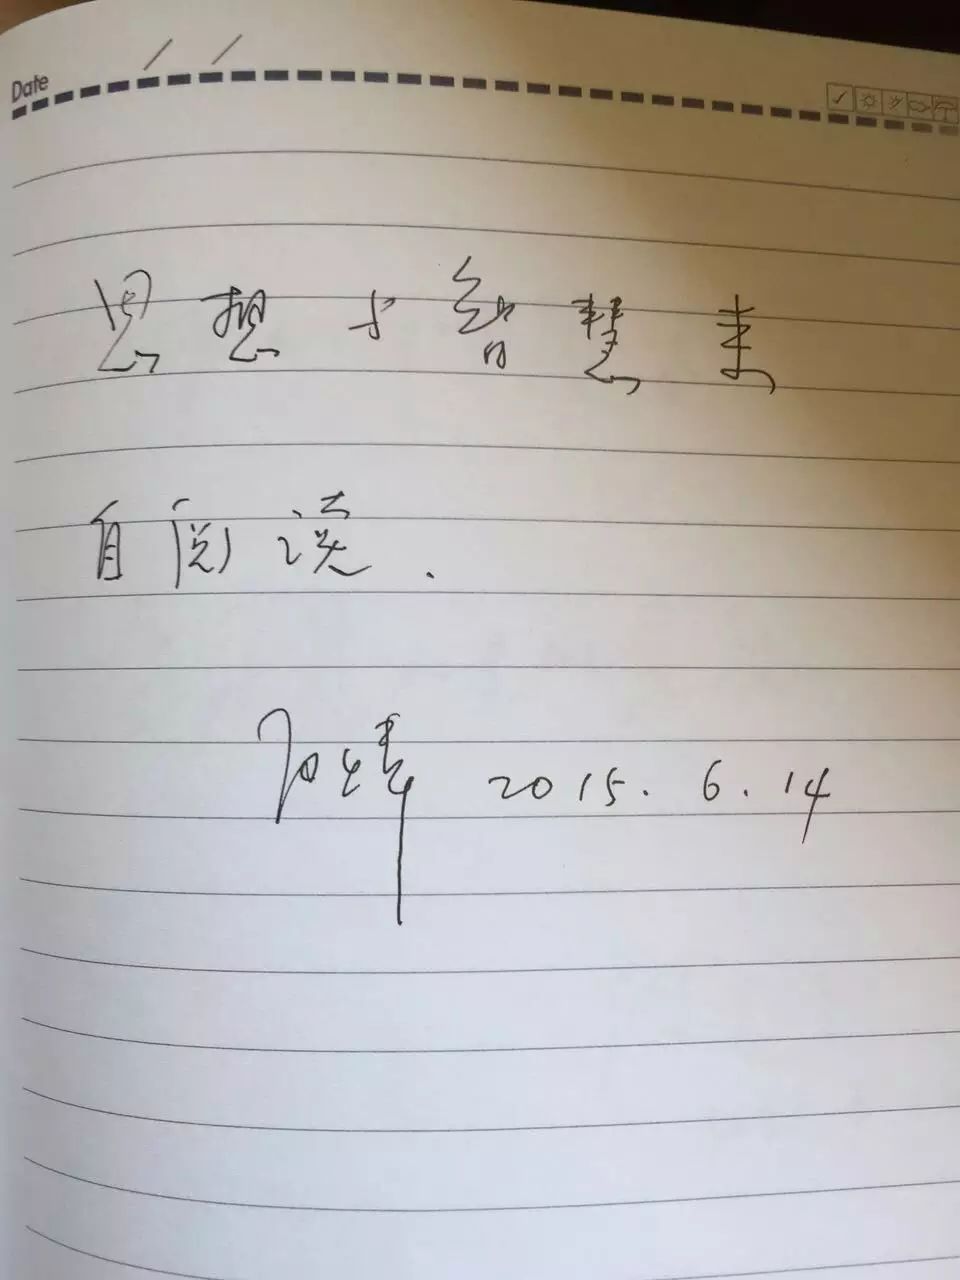 Date / /
思想与智慧来
自阅读.
2015.6.14